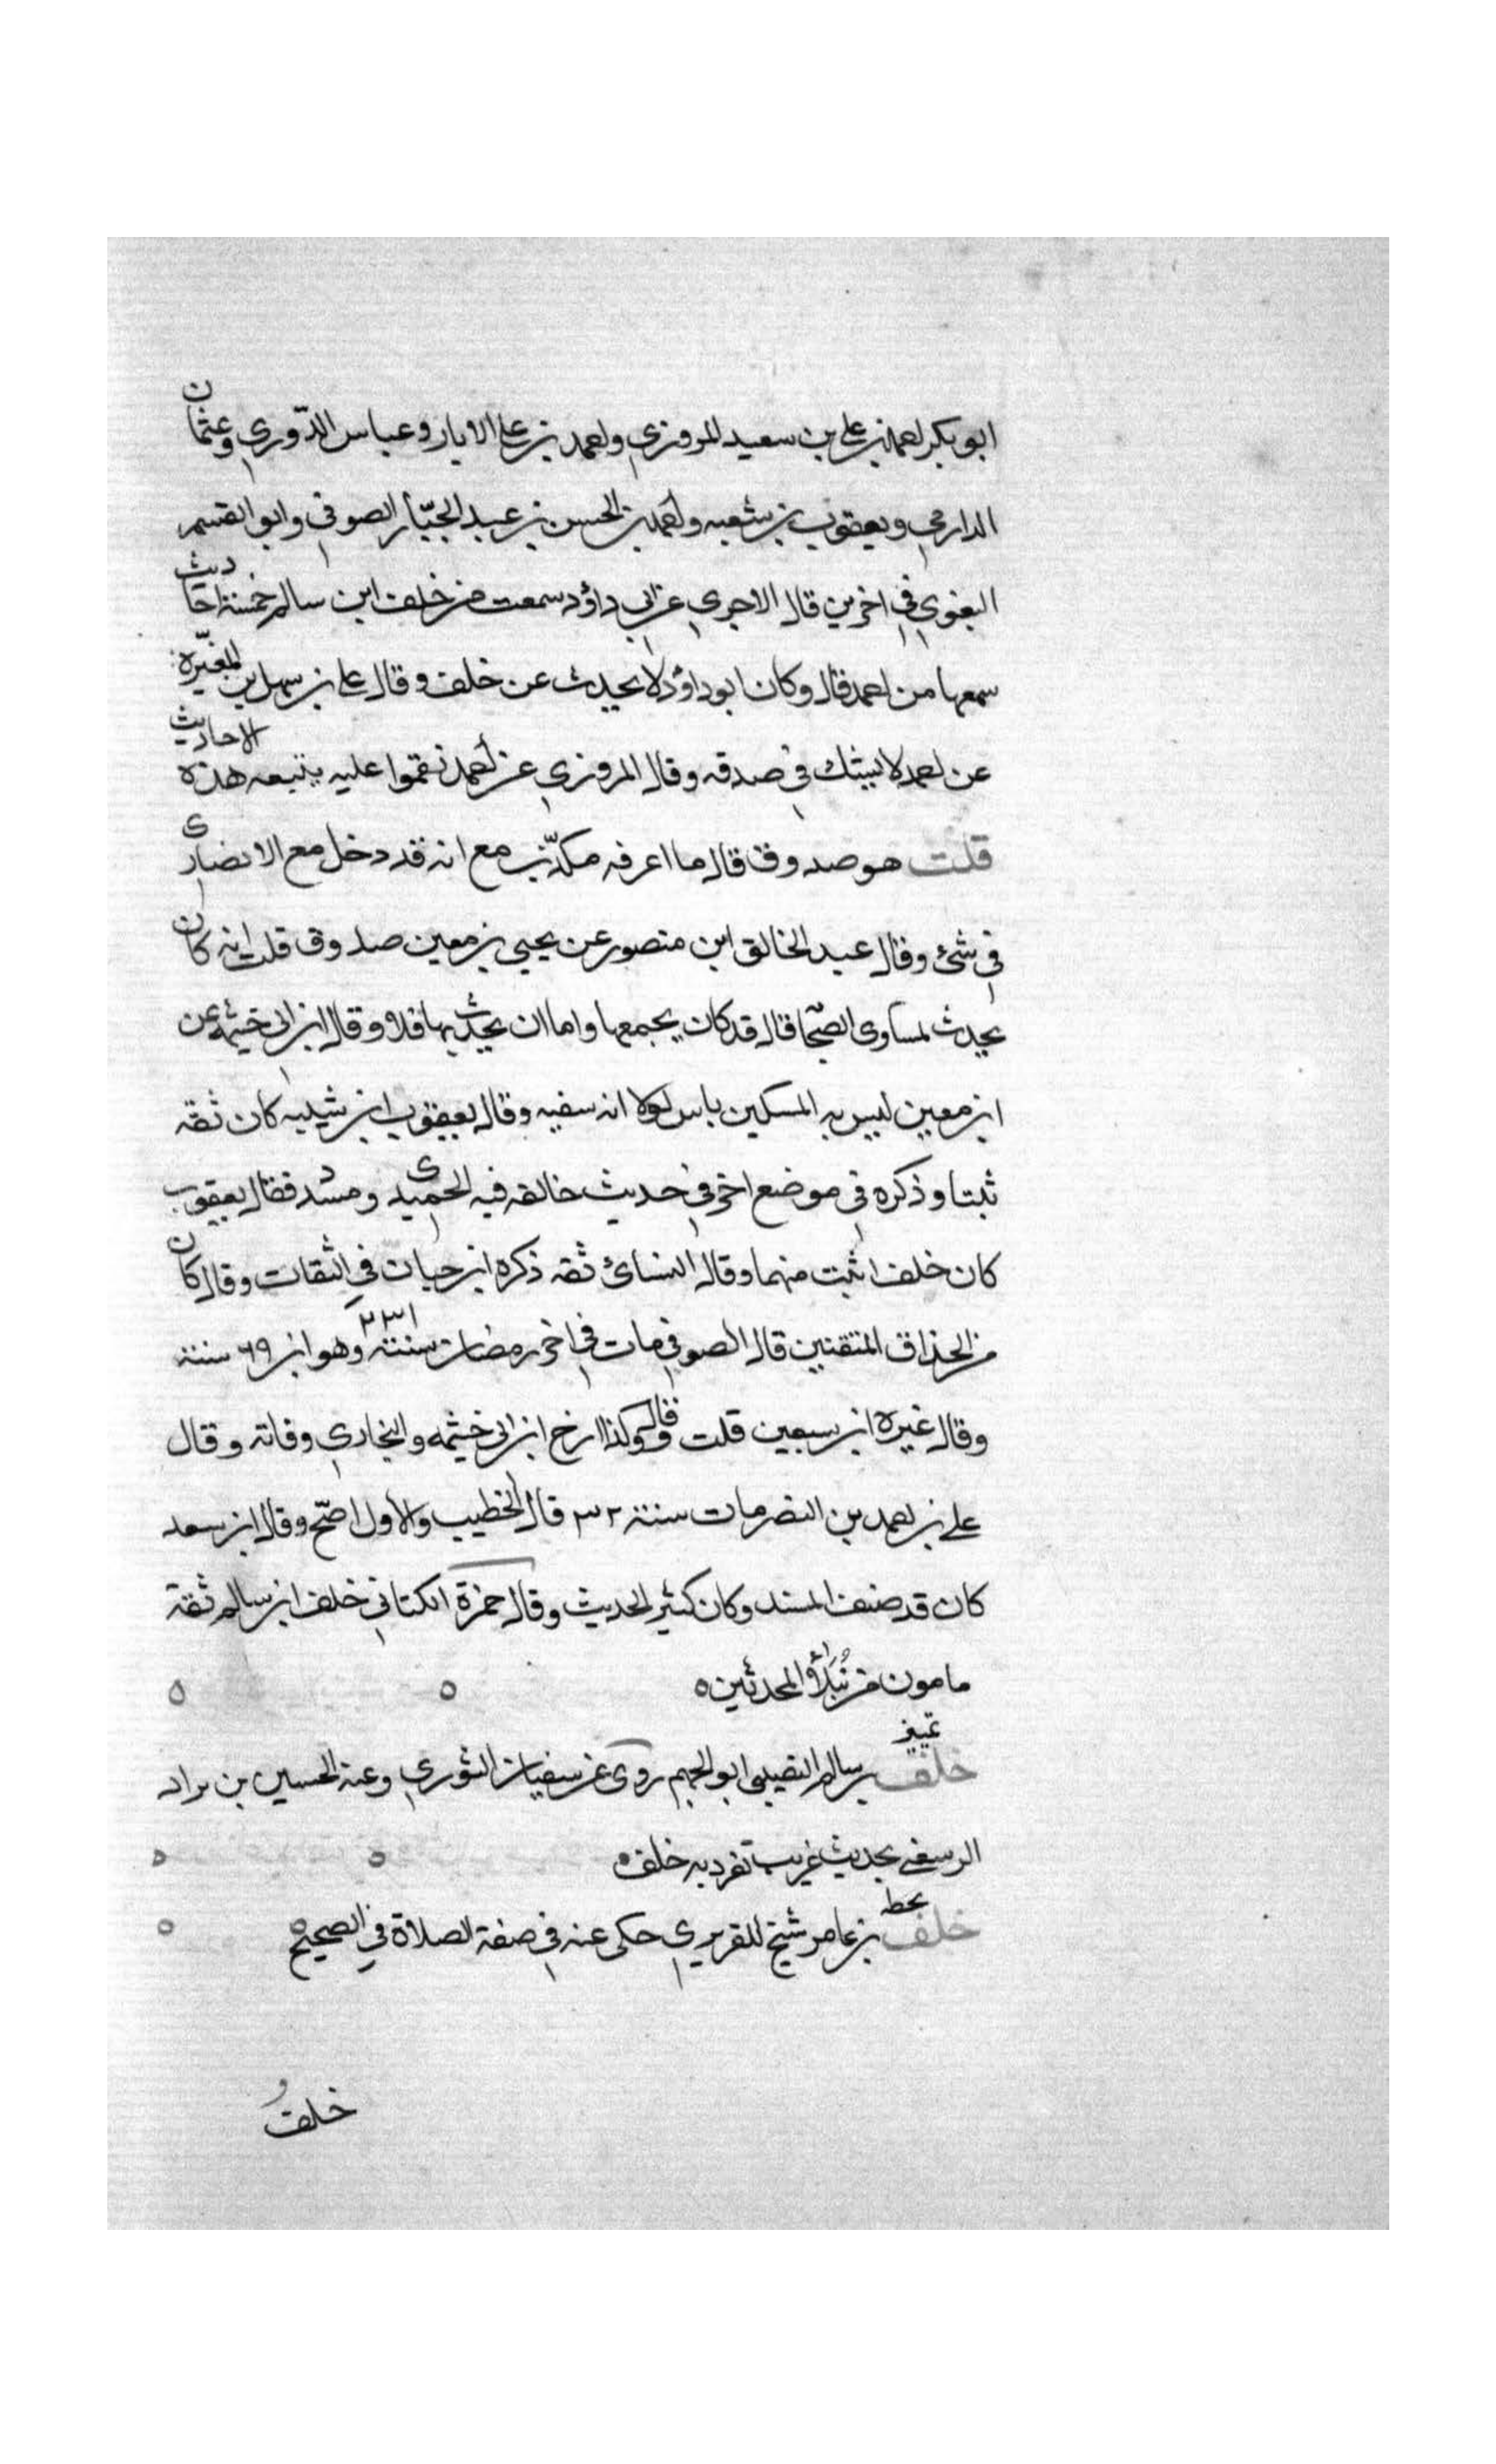 ابو بكر احمد بن علي بن سعيد المروزي واحمد بن علي الابار وعباس الدّوري وعثمان
الدارمي ويعقوب بن شعبه واحمد بن الحسن بن عبد الجبّار الصوفي وابو القسم
البغوي في اخرين قال الاجري عن ابي داؤد سمعت من خلف ابن سالم خمسة احاديث
سمعها من احمد قال وكان ابو داؤد لا يحدث عن خلف وقال علي بن سهل بن المغيّرة
عن احمد لا يشك في صدقه وقال المروزي عن احمد نقموا عليه بتتبعه هذه الاحاديث
قلت هو صدوق قال ما اعرفه مكذّب مع انه قد دخل مع الانصاري
في شئ وقال عبد الخالق ابن منصور عن يحيي بن معين صدوق قلت انه كان
يحدث لمساوى الصحّا قال قد كان يجمعها واما ان يحدث بها فلا وقال ابن ابي خيثمه عن
ابن معين ليس به المسكين باس لولا انه سفيه وقال يعقوب ابن شيبه كان ثقه
ثبتا وذكره في موضع اخر في حديث خالفه فيه الحميدي ومسدد فقال يعقوب
كان خلف اثبت منهما وقال النسائ ثقه ذكره ابن حبان في الثقات وقال كان
من الحذاق المتقنين قال الصوفي مات في اخر رمضان سنة ٢٣١ وهو ابن ٦٩ سنة
وقال غيره ابن سبعين قلت قال وكذا ارخ ابن ابي خيثمه والبخاري وفاته وقال
علي بن احمد بن النضر مات سنة ٣٢ قال الخطيب والاول اصّح وقال ابن سعد
كان قد صنف المسند وكان كثير الحديث وقال حمزة الكتاني خلف ابن سالم ثقة
مامون من نُبَلاؤُ المحدثين ٥ ٥ ٥
تمييز
خلف بن سالم النصيبى ابو الجهم روى عن سفيان الثوري وعنه الحسين بن براد
الرسغي بحديث غريب تفرد به خلف ٥ ٥
بحطه
خلف بن عامر شيخ للفربري حكى عنه في صفة الصلاة في الصحيح ٥ ٥
خلفُ